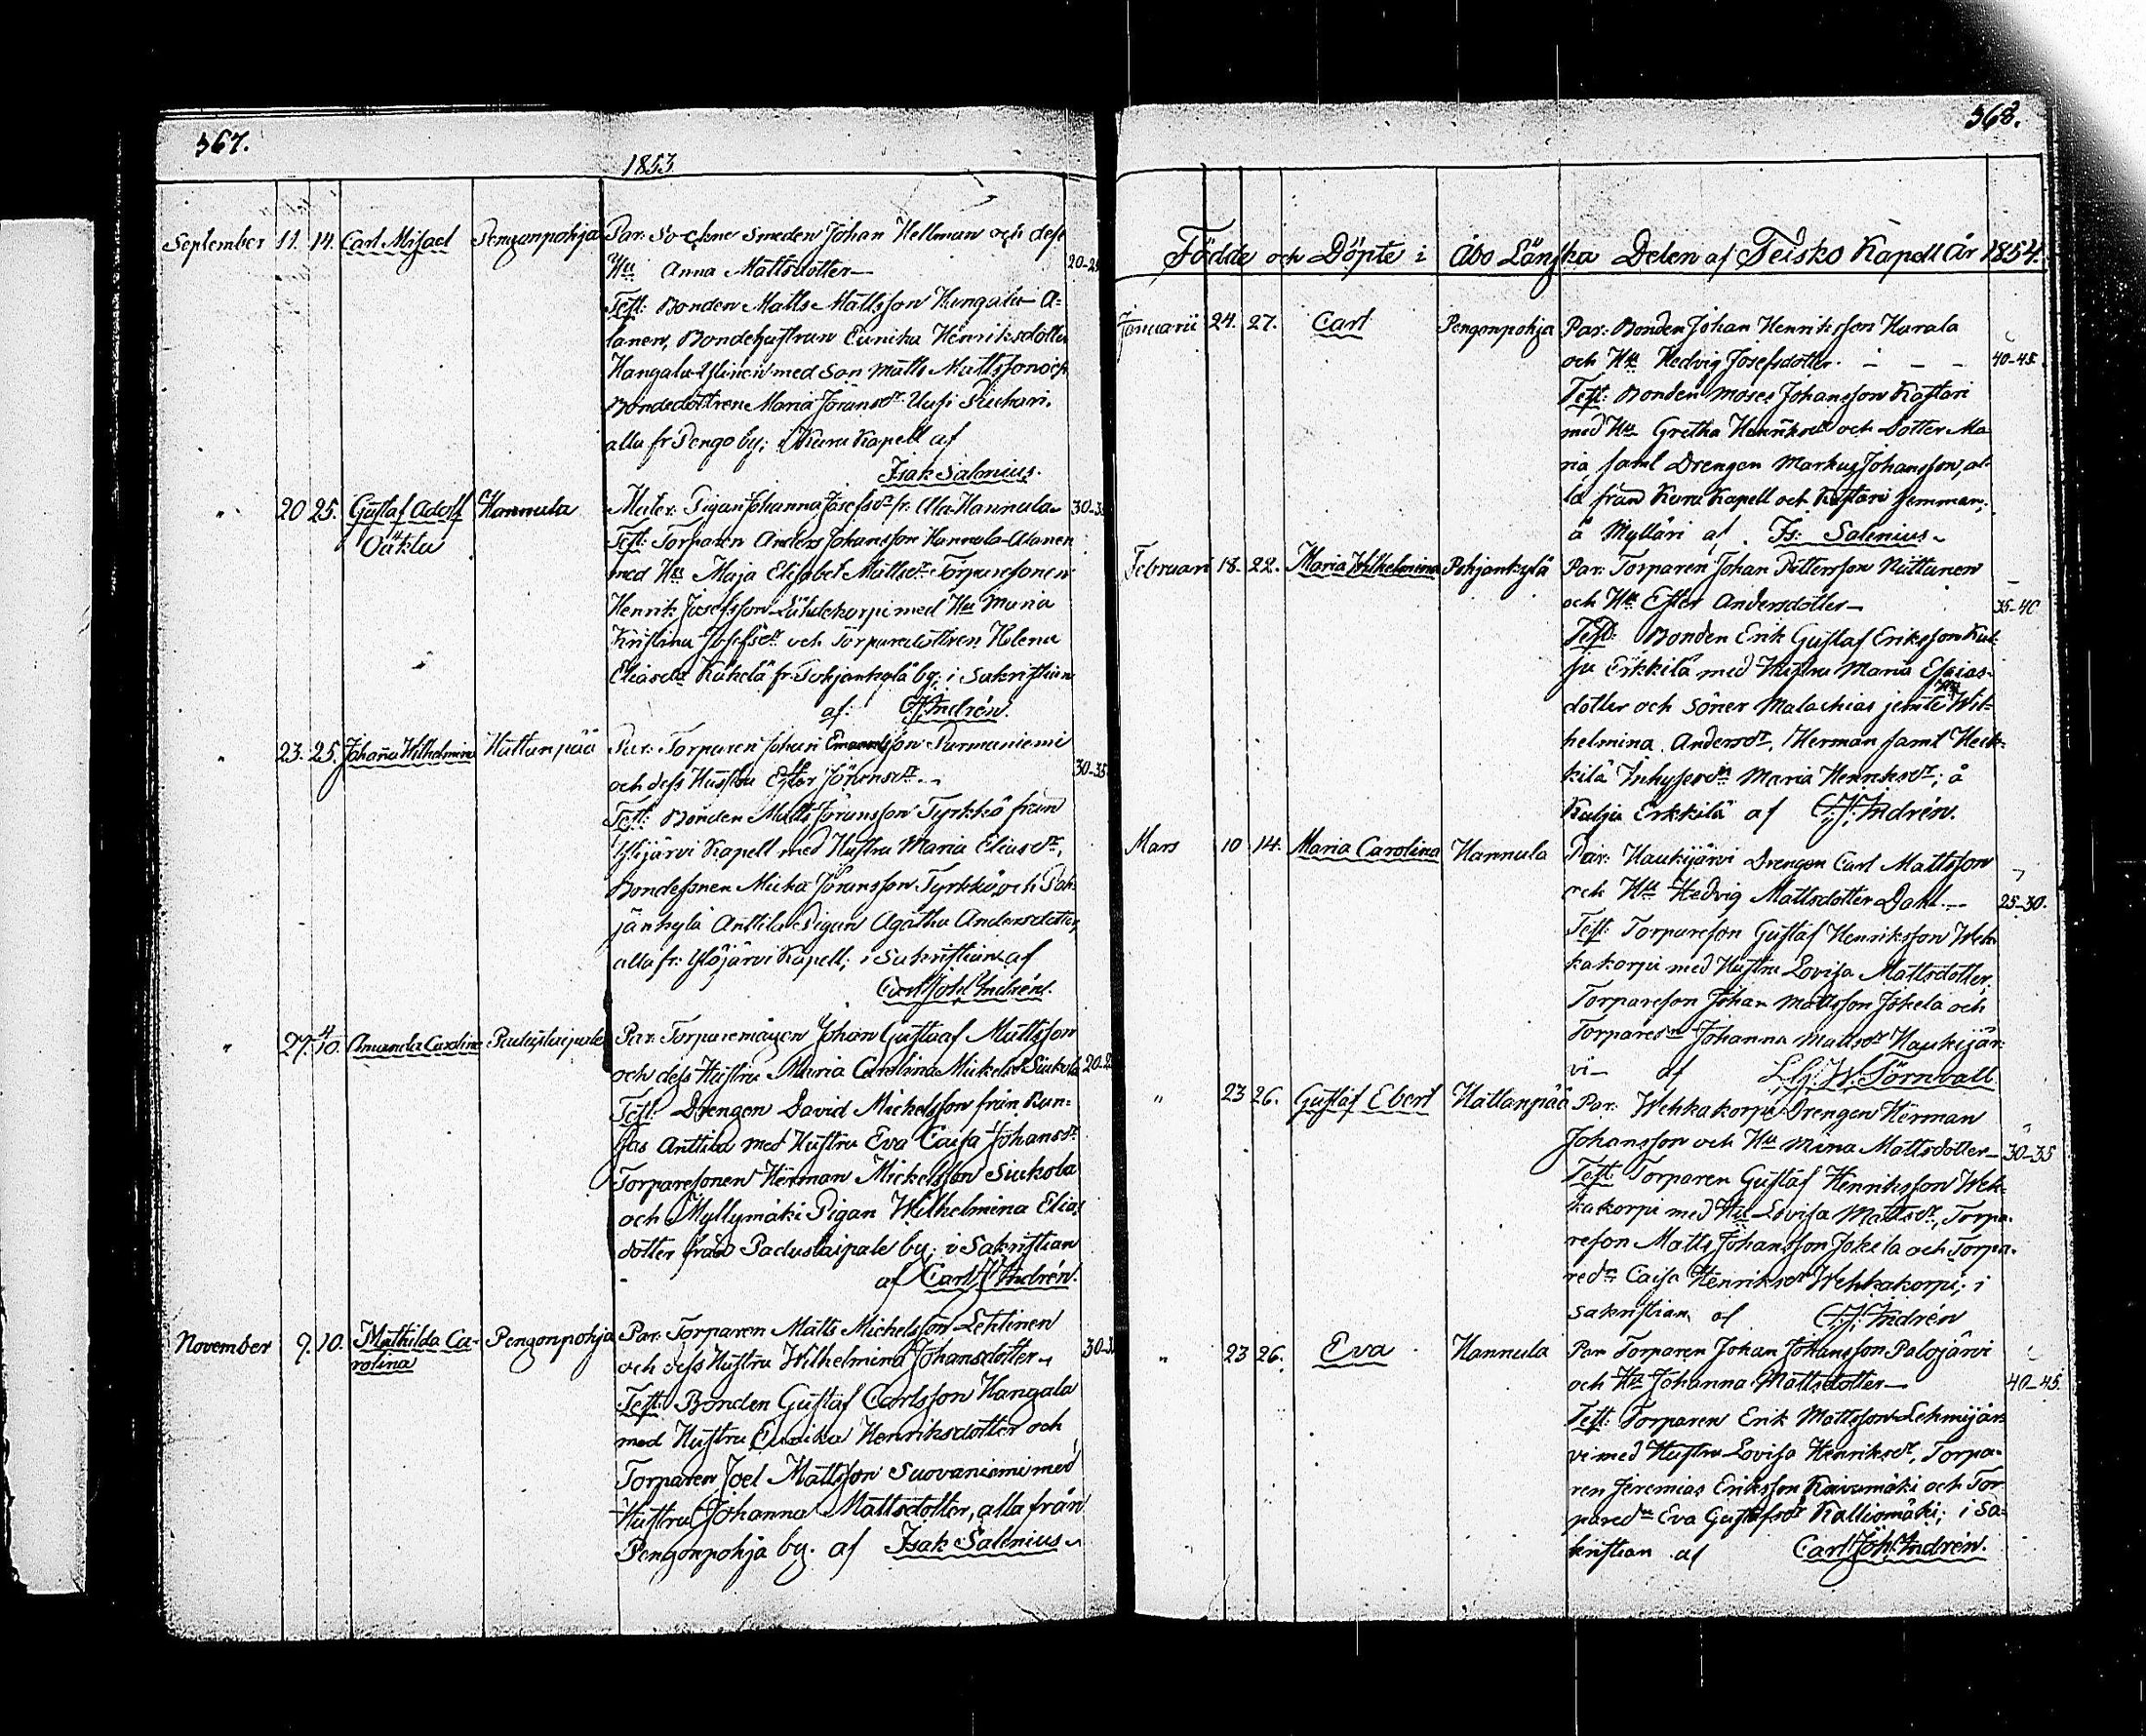 367.
1853.
September 11. 14. Carl Misael Pengonpohja Par: Sockne Smeden Johan Hellman och dess
Hu Anna Mattsdotter— 20-25
Test: Bonden Matts Mattsson Hangala-A-
lanen, Bondehustrun Eunika Henriksdotter
Hangala-Ylinen med Son Matts Mattsson och
Bondedottren Maria Göransdr Uusi
alla fr Pengo by; i Kuru Kapell af
Isak Salenius.
" 20 25. Gustaf Adolf Hannula Mater: Pigan Johanna Josefsdr fr. Ala-Hannula 30-35
Oäkta Test: Torparen Anders Johansson Hannula-Alanen
med Hu Maja Elisabet Mattsdr Torparesonen
Henrik Josefsson Lähdekorpi med Hu Maria
Kristina Josefsdr och Torparedottren Helena
Eliasdr Käkelä fr. Pohjankylä by; i Sakristian
af: C.J. Indrén.
" 23. 25. Johanna Wilhelmina Hattanpää Par: Torparen Johan Emanuelsson Purmaniemi
och dess Hustru Ester Göransdr. 30-35
Test: Bonden Matts Göransson Tyrkkö från
Ylöjärvi Kapell med Hustru Maria Eliasdr,
Bondesonen Micha Göransson Tyrkkö och Poh-
jankylä Anttila Pigan Agatha Andersdotter,
alla fr: Ylöjärvi Kapell; i Sakristian af
Carl Joh. Indrén.
" 27. 4/10. Amanda Carolina Padustaipale Par: Torparemågen Johan Gustaaf Mattsson
och dess Hustru Maria Carolina Mickelsdr Siukola 20-25
Test: Drengen David Mickelsson från Run-
sas Anttila med Hustru Eva Caisa Johansdr
Torparesonen Herman Mickelsson Siukola
och Myllymäki Pigan Wilhelmina Elias
dotter från Padustaipale by; i Sakristian
af Carl J. Indrén.
November 9. 10. Mathilda Ca- Pengonpohja Par: Torparen Matts Michelsson Lehtinen
rolina och dess Hustru Wilhelmina Johansdotter 30-35
Test: Bonden Gustaf Carlsson Hangala
med Hustru Eunika Henriksdotter och
Torparen Joel Mattsson Suovaniemi med
Hustru Johanna Mattsdotter, alla från
Pengonpohja by. af Isak Salenius
368.
Födde och Döpte i Åbo Länska Delen af Teisko Kapell År 1854.
Januarii 24. 27. Carl Pengonpohja Par: Bonden Johan Henriksson Harala
och Hu Hedvig Josefsdotter. — — — 40-45.
Test: Bonden Moses Johansson Kastari
med Hu Gretha Henriksdr och Dotter Ma
ria, samt Drengen Markus Johansson, al-
la från Kuru Kapell och Kastari hemman;
å Mylläri af Is: Salenius
Februari 18. 22. Maria Wilhelmina Pohjankylä Par: Torparen Johan Pettersson Niittanen
och Hu Ester Andersdotter— 35-40
Test: Bonden Erik Gustaf Eriksson Kul-
ju Erkkilä med Hustru Maria Esaias-
dotter och Söner Malachias jemte Wil-
helmina Andersdr, Herman samt Heik-
kilä Inhysesdn Maria Henriksdr; å
Kulju Erkkilä af C.J. Indrén.
Mars 10 14. Maria Carolina Hannula Par: Haukijärvi Drengen Carl Mattsson
och Hu Hedvig Mattsdotter Dahl.— 25-30.
Test: Torpareson Gustaf Henriksson Weh-
kakorpi med Hustru Lovisa Mattsdotter,
Torpareson Johan Mattsson Jokela och
Torparedn Johanna Mattsdr Haukijär-
vi— af W. Törnvall
" 23 26. Gustaf Ebert Hattanpää Par: Wehkakorpi Drengen Herman
Johansson och Hu Mina Mattsdotter— 30-35
Test: Torparen Gustaf Henriksson Weh-
kakorpi med Hu Lovisa Mattsdr, Torpa-
reson Matts Johansson Jokela och Torpa-
redn Caisa Henriksdr Wehkakorpi; i
Sakristian af C.J. Indrén
" 23 26. Eva Hannula Par Torparen Johan Johansson Palojärvi
och Hu Johanna Mattsdotter— 40-45.
Test: Torparen Erik Mattsson Lehmijär-
vi med Hustru Lovisa Henriksdr, Torpa-
ren Jeremias Eriksson Kaivumäki och Tor
paredn Eva Gustafsdr Kalliomäki; i Sa-
kristian af Carl Joh. Indrén.